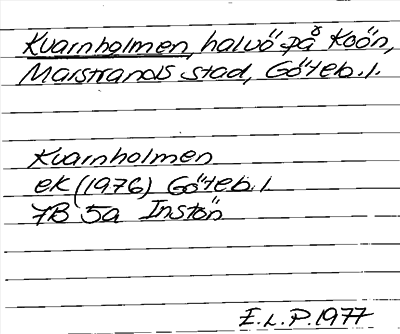 Kvarnholmen, halvö på Koön,
Marstrands stad, Göteb. l.
Kvarnholmen
ek (1976) Göteb. l
7B 5a Instön
E. L. P. 1977